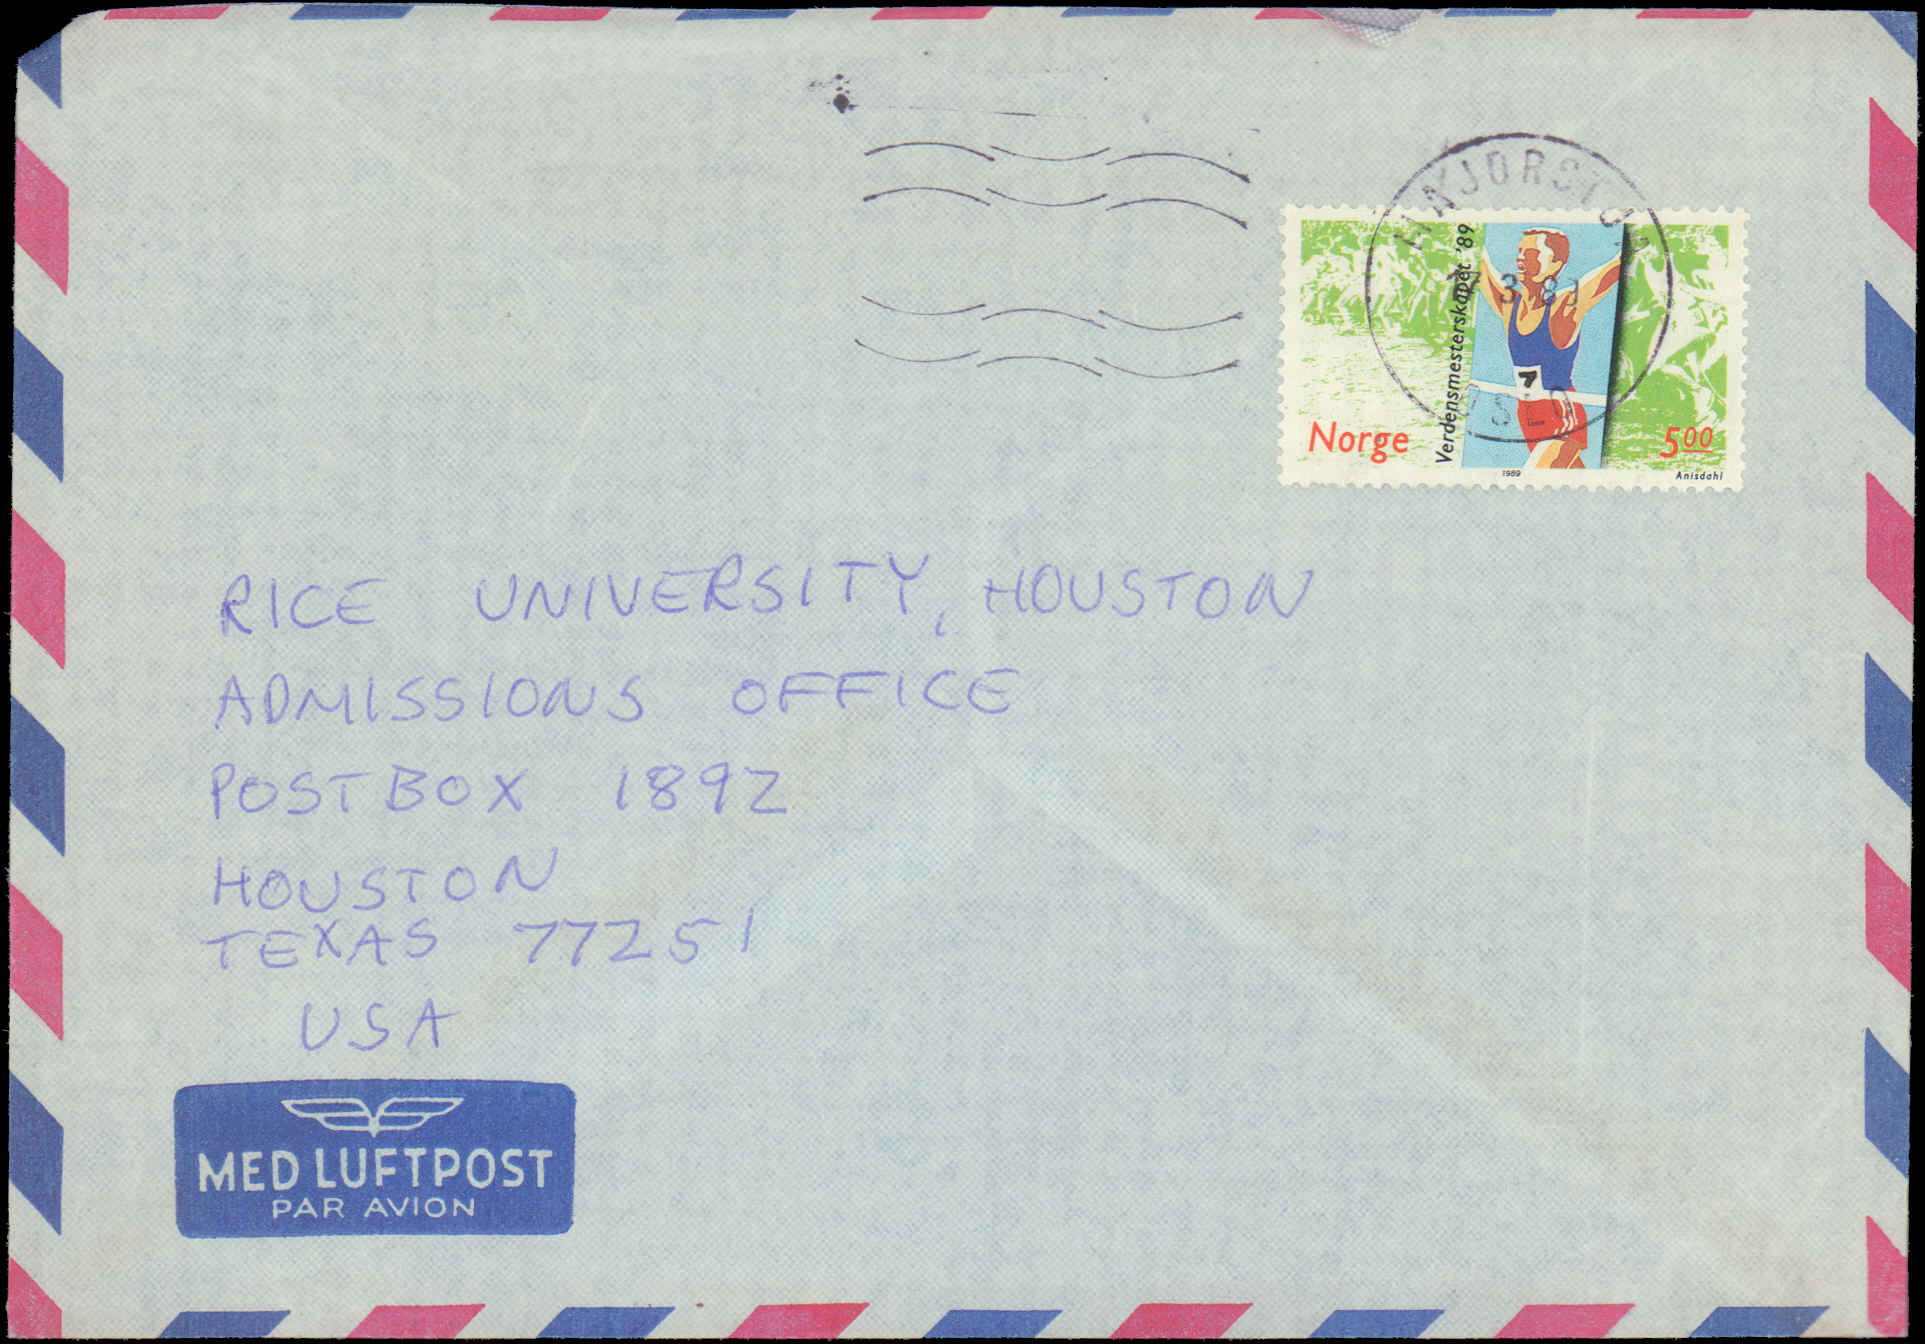 Verdensmesterskapet '89
7
Norge
5 00
1989
Anisdahl
OSLO
RICE UNIVERSITY, HOUSTON
ADMISSIONS OFFICE
POSTBOX 1892
HOUSTON
TEXAS 77251
USA
MED LUFTPOST
PAR AVION